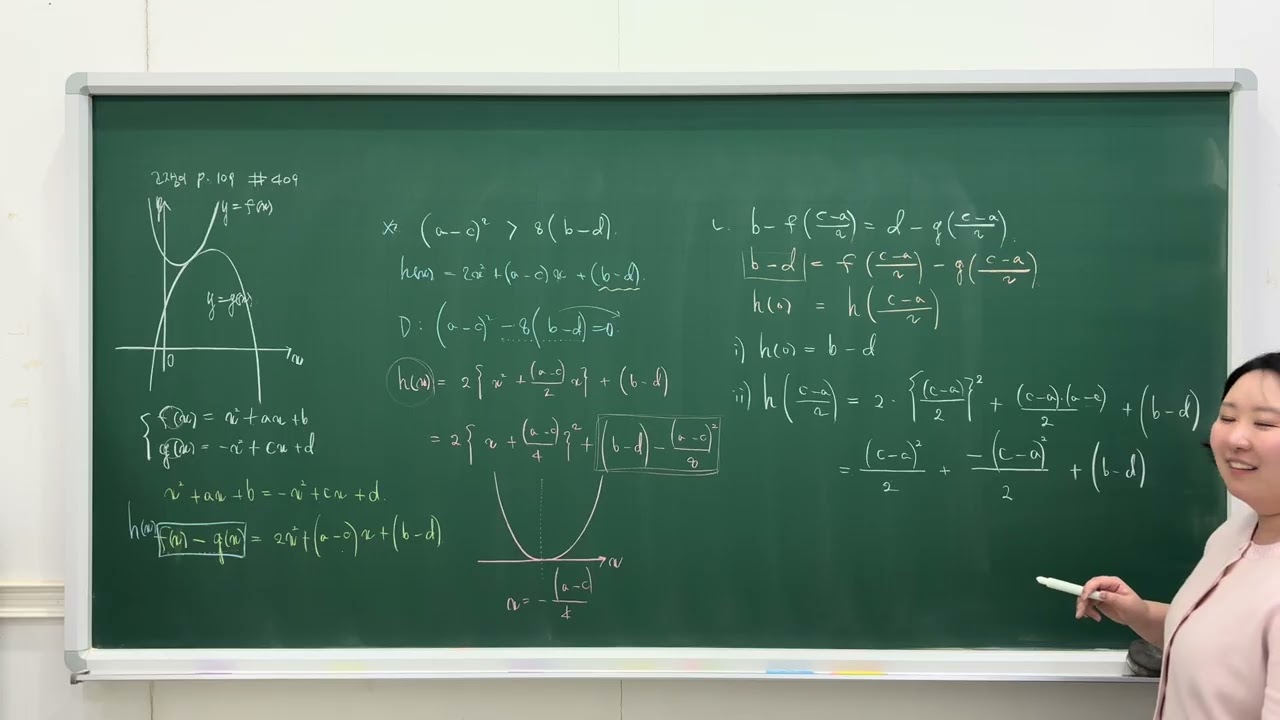 p. 109 #409
y
y=f(x)
y=g(x)
0
x
f(x) = x²+ax+b
g(x) = -x²+cx+d
x²+ax+b = -x²+cx+d.
h(x)
f(x) - g(x) = 2x²+(a-c)x+(b-d)
(a-c)² > 8(b-d).
h(x) = 2x²+(a-c)x+(b-d).
D : (a-c)² - 8(b-d)=0.
h(x) = 2{ x² + (a-c)/2 x } + (b-d)
= 2{ x + (a-c)/4 }² + (b-d) - (a-c)²/8
x
x = - (a-c)/4
ㄴ. b - f((c-a)/2) = d - g((c-a)/2).
b-d = f((c-a)/2) - g((c-a)/2).
h(0) = h((c-a)/2)
i) h(0) = b-d
ii) h((c-a)/2) = 2·{(c-a)/2}² + (c-a)·(a-c)/2 + (b-d)
= (c-a)²/2 + -(c-a)²/2 + (b-d)